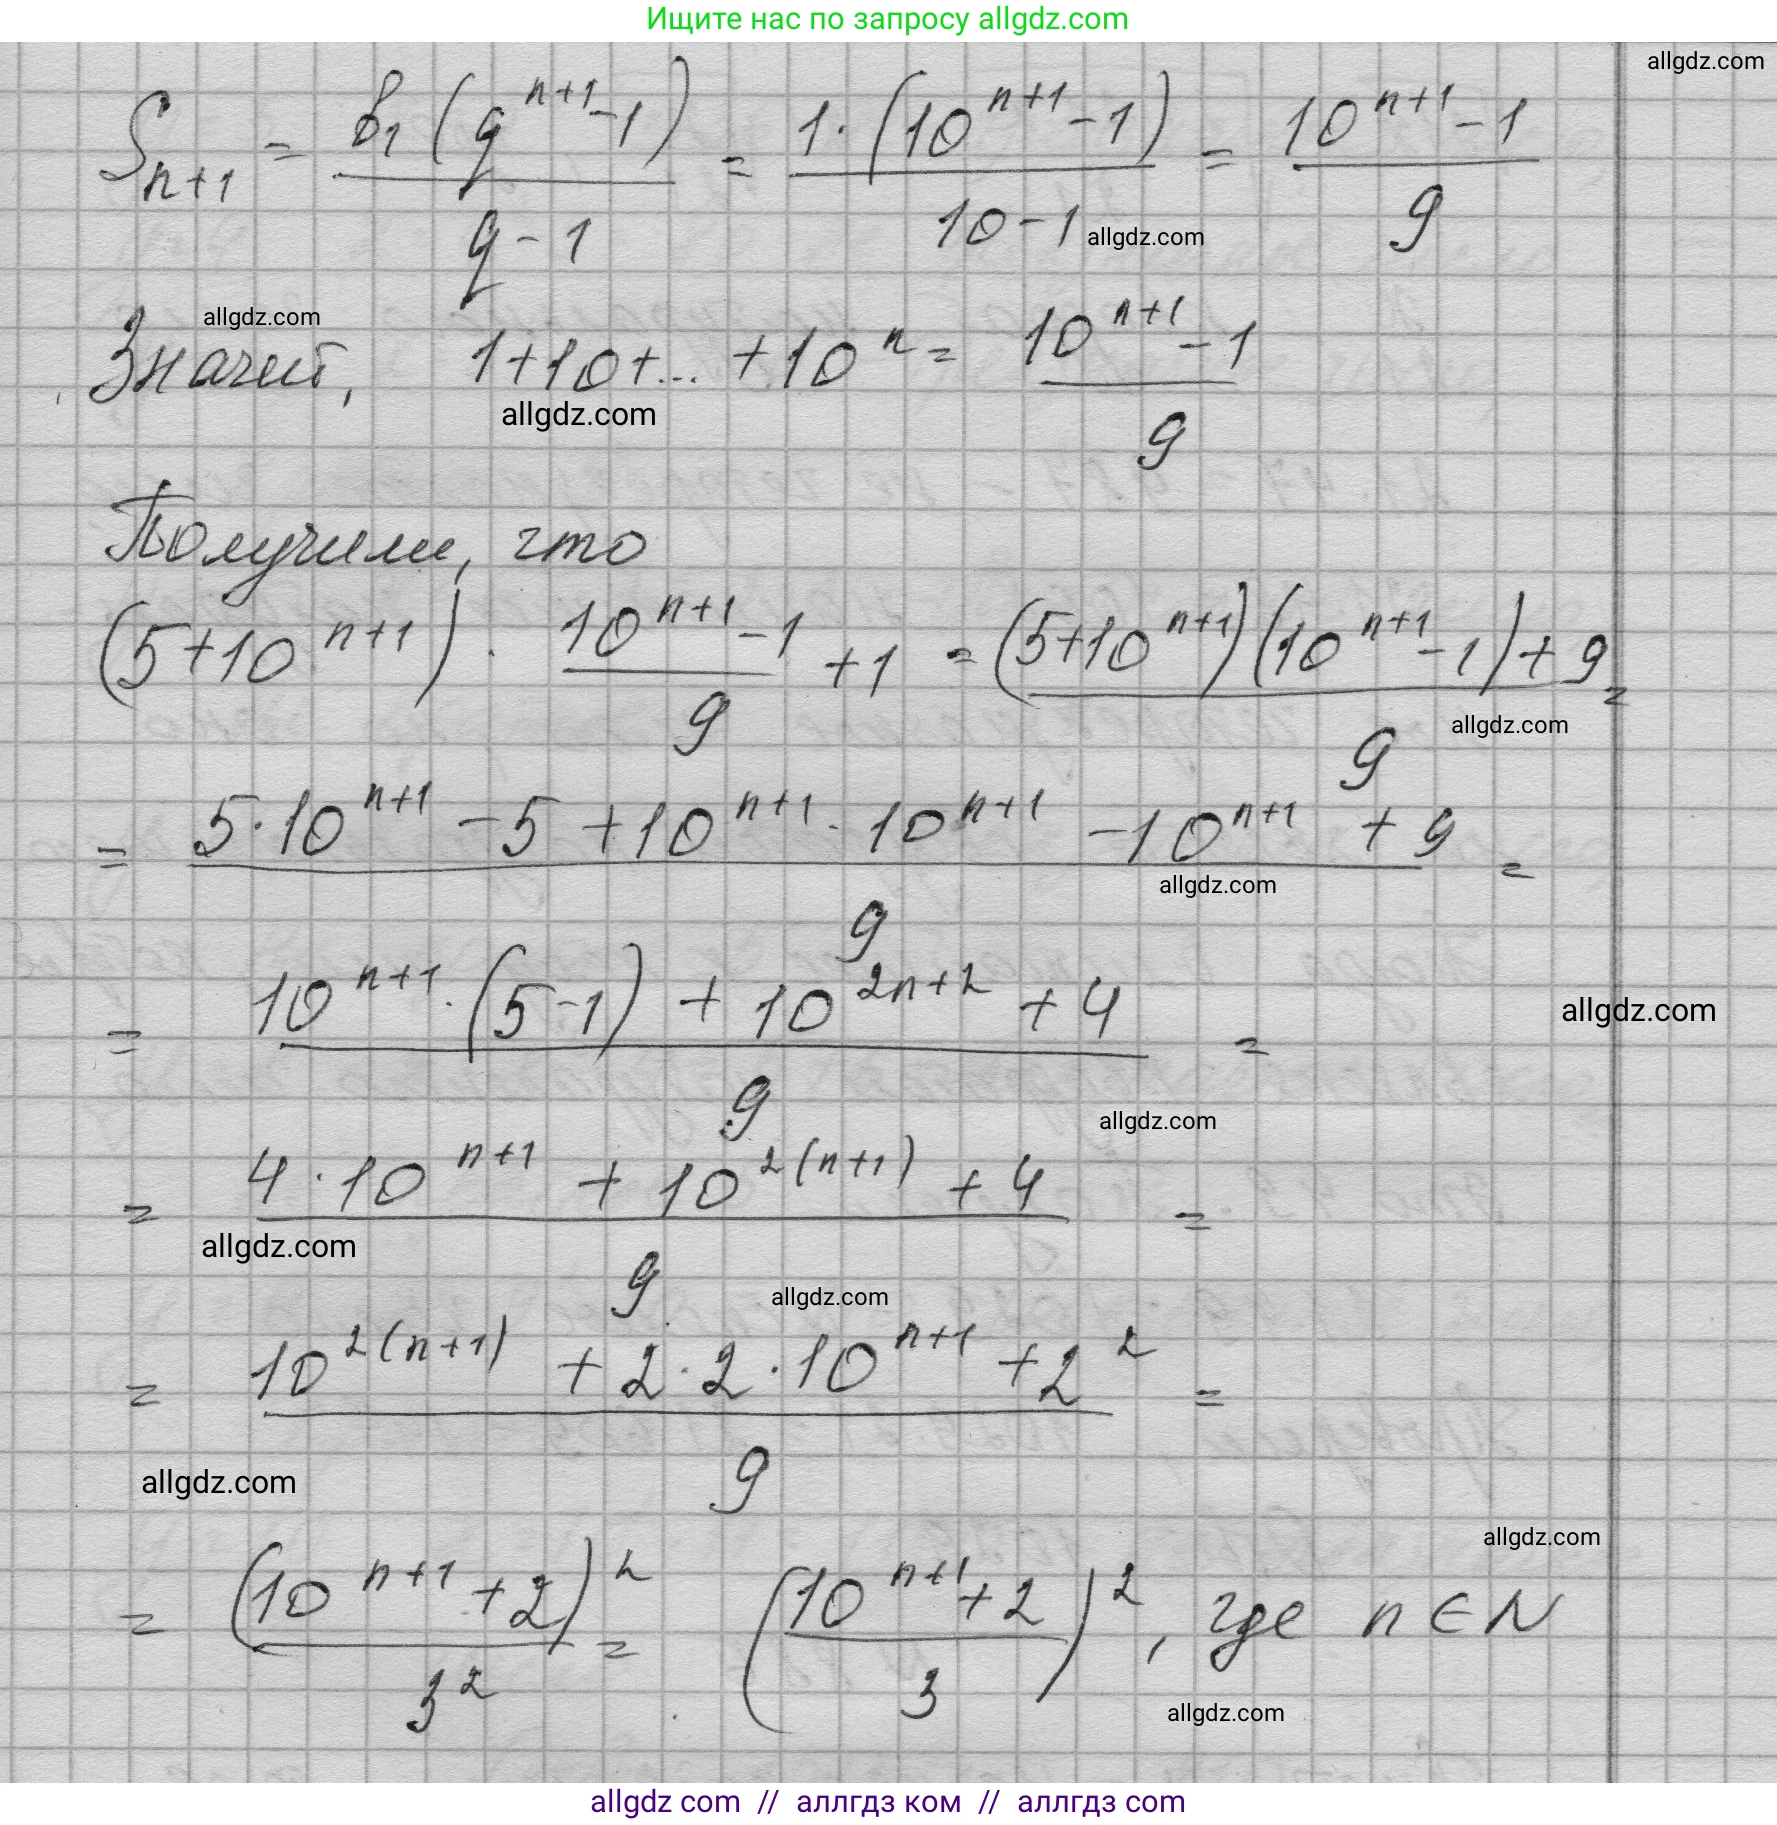 Ищите нас по запросу allgdz.com
allgdz.com
S_{n+1} = \frac{b_1(q^{n+1}-1)}{q-1} = \frac{1·(10^{n+1}-1)}{10-1} = \frac{10^{n+1}-1}{9}
allgdz.com
allgdz.com
Значит, 1+10+...+10^n = \frac{10^{n+1}-1}{9}
allgdz.com
Получили, что
(5+10^{n+1}) · \frac{10^{n+1}-1}{9} +1 = \frac{(5+10^{n+1})(10^{n+1}-1)+9}{9} =
allgdz.com
= \frac{5·10^{n+1} -5 +10^{n+1} · 10^{n+1} -10^{n+1} +9}{9} =
allgdz.com
= \frac{10^{n+1}·(5-1) + 10^{2n+2} +4}{9} =
allgdz.com
allgdz.com
= \frac{4·10^{n+1} + 10^{2(n+1)} +4}{9} =
allgdz.com
allgdz.com
= \frac{10^{2(n+1)} +2·2·10^{n+1} +2^2}{9} =
allgdz.com
allgdz.com
= \frac{(10^{n+1}+2)^2}{3^2} = (\frac{10^{n+1}+2}{3})^2, где n ∈ N
allgdz.com
allgdz com // аллгдз ком // аллгдз com